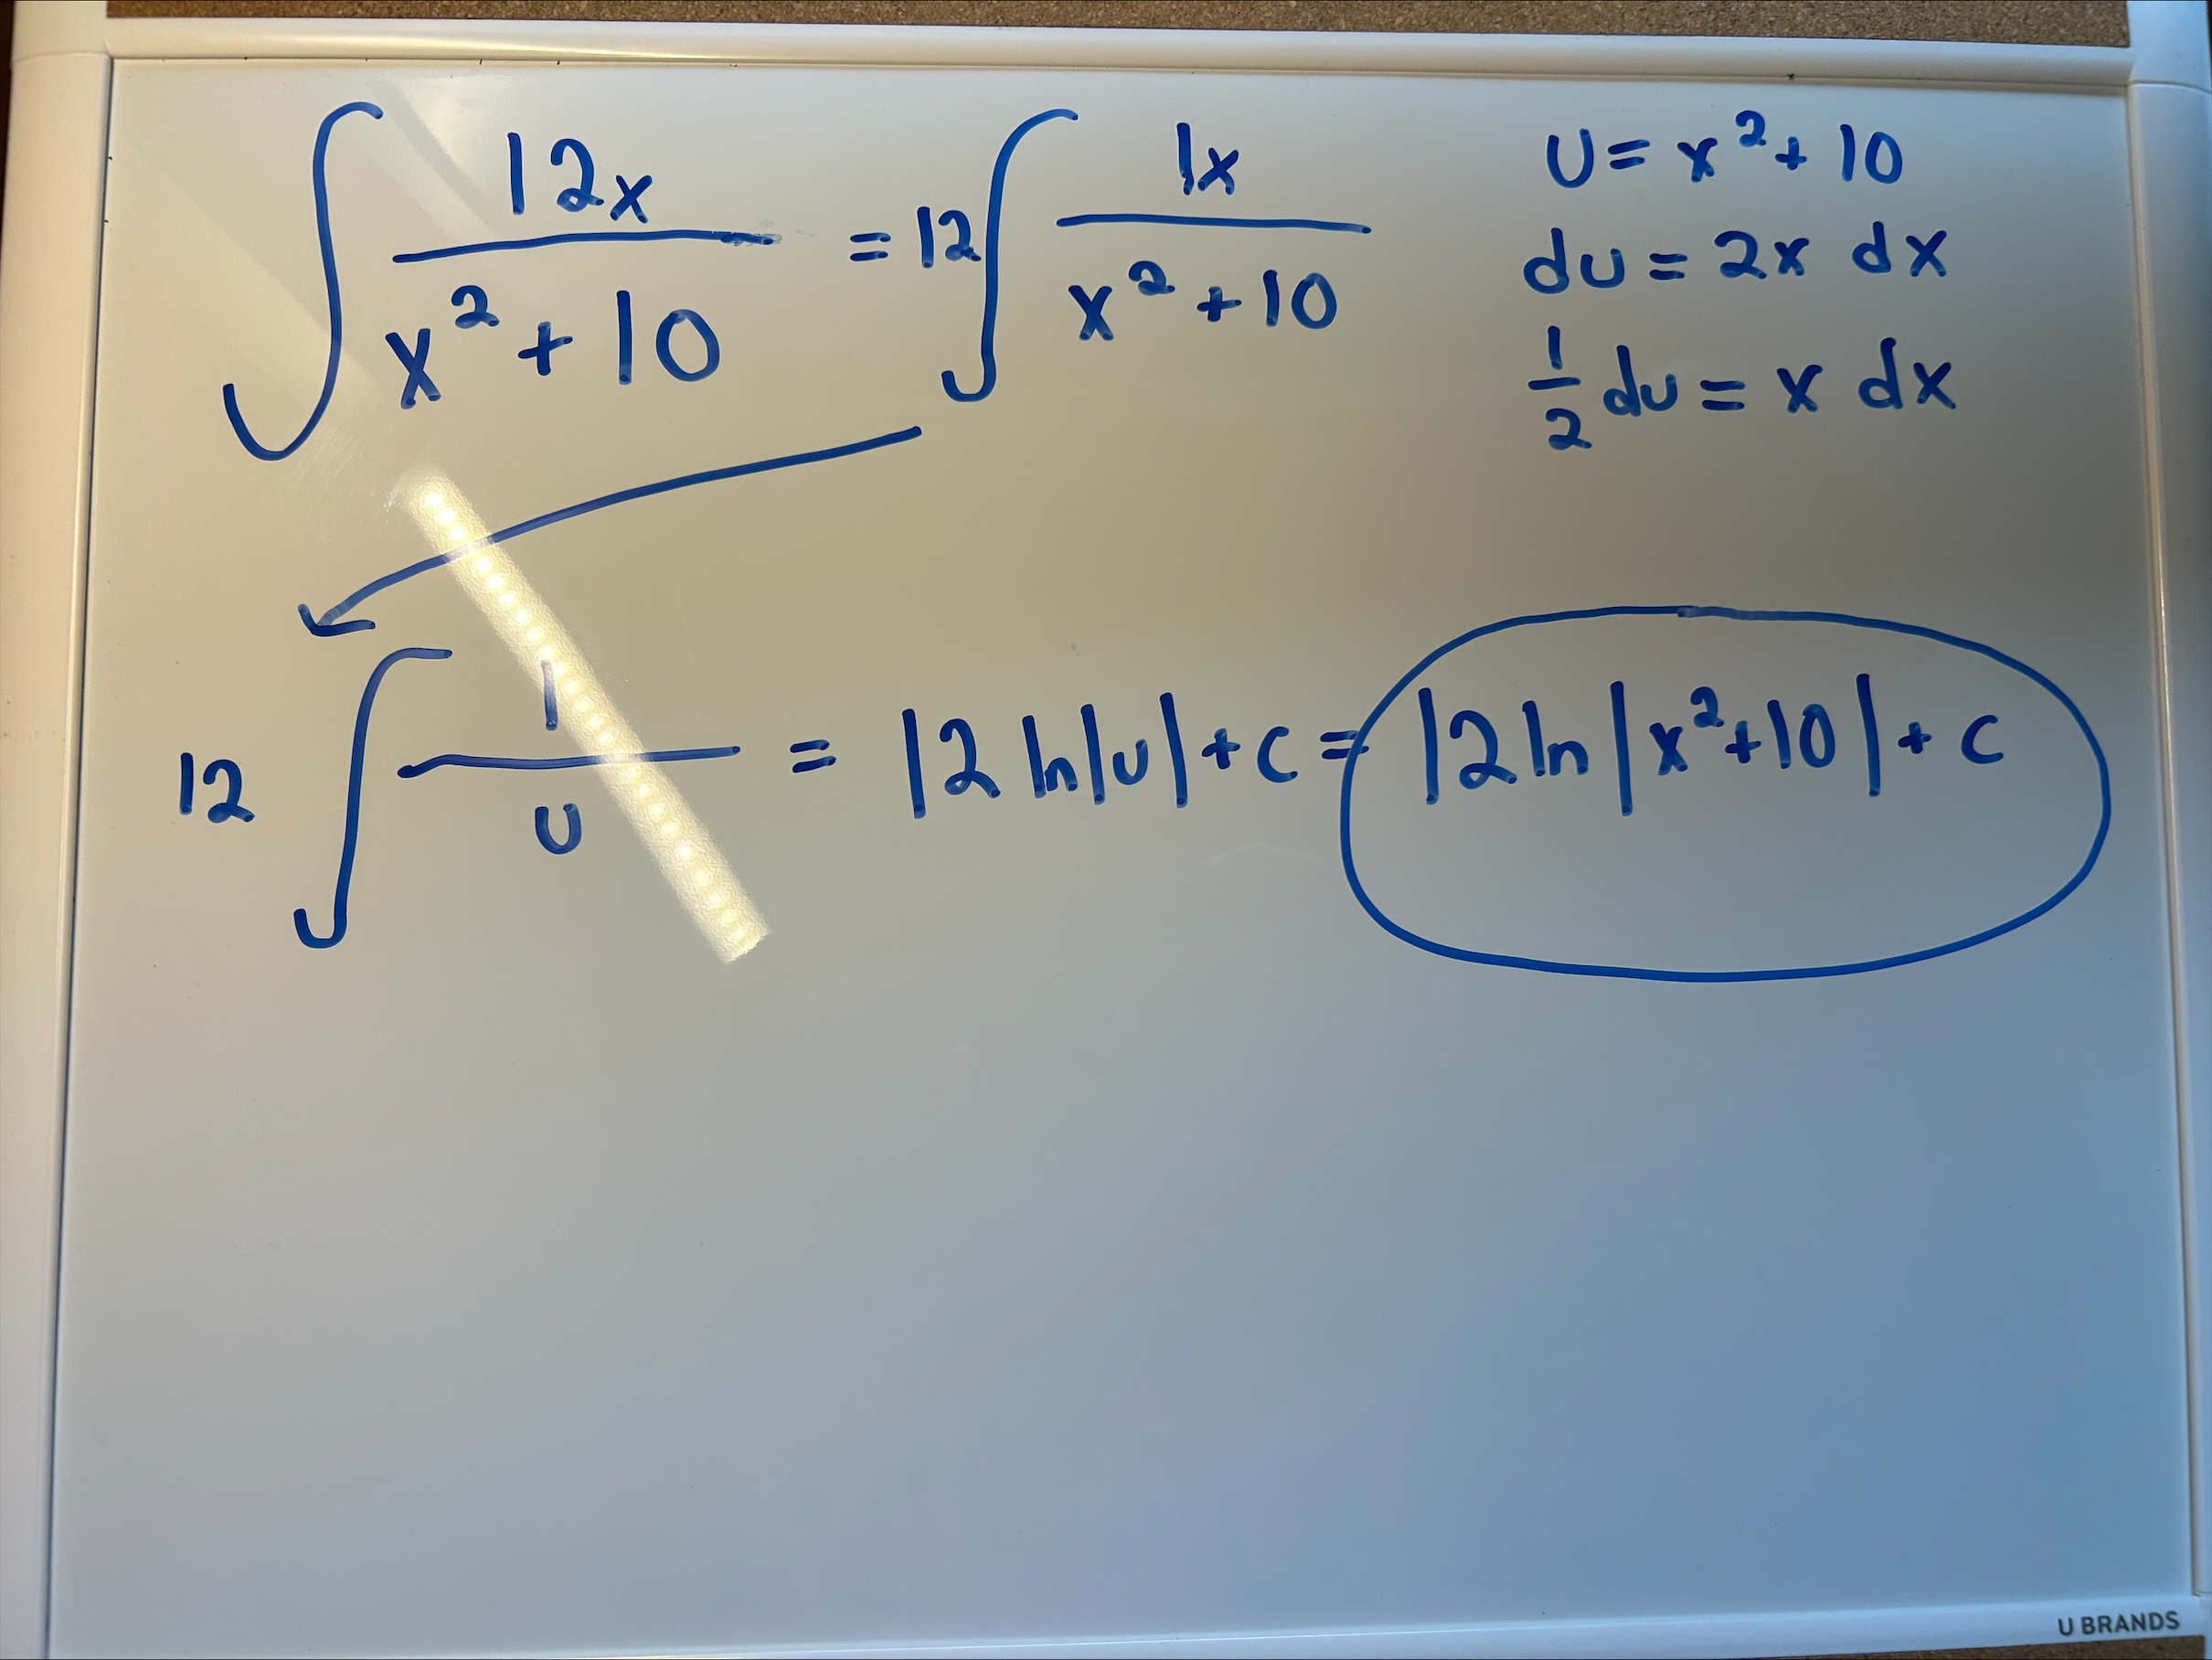 ∫ 12x / x² + 10 = 12 ∫ 1x / x² + 10
U = x² + 10
du = 2x dx
1/2 du = x dx
12 ∫ 1 / u = 12 ln|u| + c = 12 ln|x² + 10| + c
U BRANDS